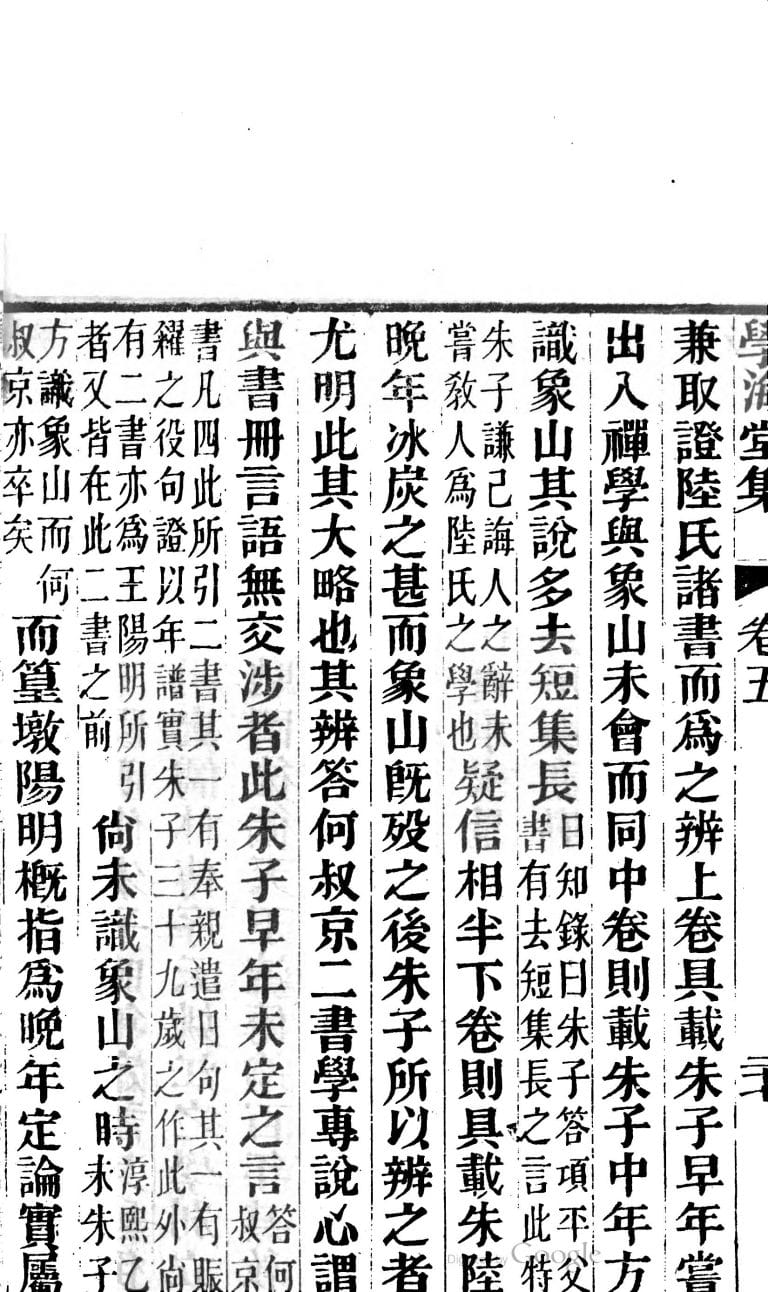 學海堂集 卷五 二十
兼取證陸氏諸書而爲之辨上卷具載朱子早年嘗
出入禪學與象山未會而同中卷則載朱子中年方
識象山其說多去短集長日知錄曰朱子答項平父
書有去短集長之言此特
朱子謙己誨人之辭未
嘗敎人爲陸氏之學也疑信相半下卷則具載朱陸
晚年冰炭之甚而象山旣歿之後朱子所以辨之者
尤明此其大略也其辨答何叔京二書學專說心謂
與書冊言語無交涉者此朱子早年未定之言答何
叔京
書凡四此所引二書其一有奉親遣日句其一有賑
糴之役句證以年譜實朱子三十九歲之作此外尙
有二書亦爲王陽明所引
者又皆在此二書之前尙未識象山之時淳熙乙
未朱子
方識象山而何
叔京亦卒矣而篁墩陽明槪指爲晚年定論實屬
Digitized by Google